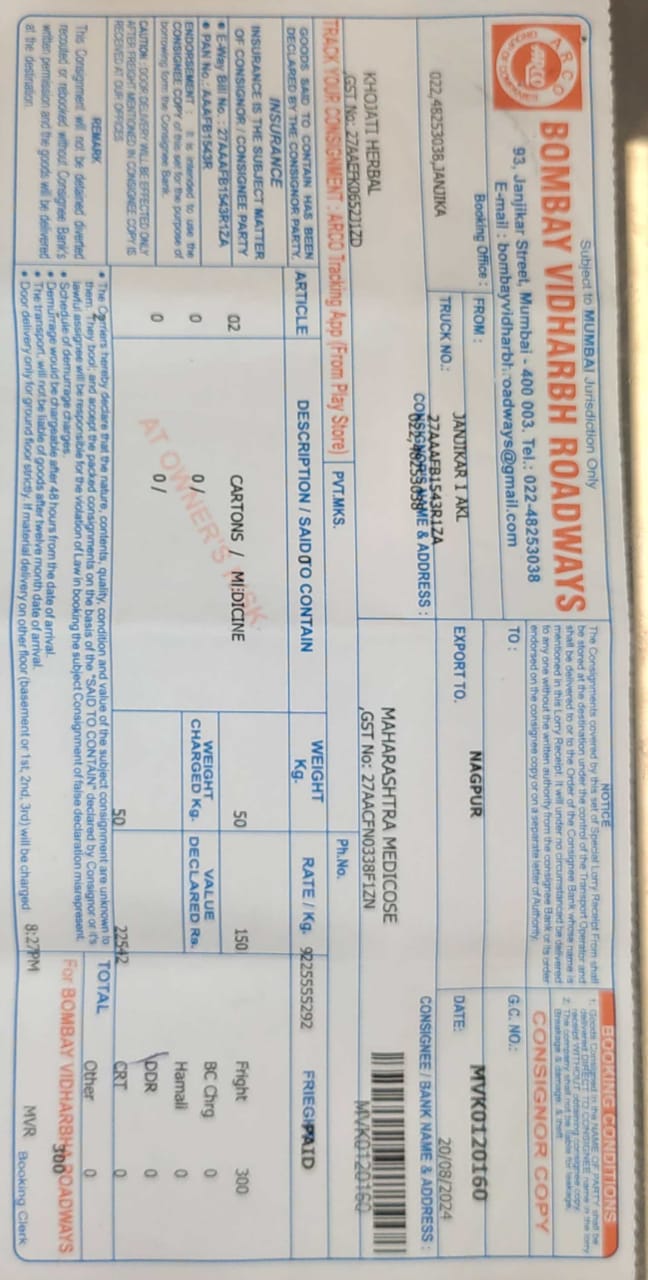 Subject to MUMBAI Jurisdiction Only
ARCO
ARCO
GROUP OF COMPANIES
BOMBAY VIDHARBH ROADWAYS
93, Janjikar Street, Mumbai - 400 003. Tel.: 022-48253038
E-mail : bombayvidharbh.roadways@gmail.com
NOTICE
The Consignments covered by this set of Special Lorry Receipt From shall
be stored at the destination under the control of the Transport Operator and
shall be delivered to or to the Order of the Consignee Bank whose name is
mentioned in this Lorry Receipt. It will under no circumstanced be delivered
to any one without the written authority from the consignee Bank or its order
endorsed on the consignee copy or on a separate letter of Authority.
BOOKING CONDITIONS
1. Goods Consigned in the NAME OF PARTY shall be
delivered DIRECT TO CONSIGNEE name in the lorry
receipt WITHOUT obtaining consignee copy.
2. The company shall not be liable for leakage,
Breakage & damage, & theft
CONSIGNOR COPY
Booking Office :
022,48253038,JANJIKA
FROM :
JANJIKAR 1 AKL
TO :
NAGPUR
G.C. NO.:
MVK0120160
TRUCK NO.:
27AAAFB1543R1ZA
EXPORT TO.
DATE:
20/08/2024
CONSIGNOR NAME & ADDRESS :
022, 48253038
KHOJATI HERBAL
,GST No: 27AAEFK0652J1ZD
CONSIGNEE / BANK NAME & ADDRESS :
MAHARASHTRA MEDICOSE
,GST No: 27AACFN0338F1ZN
MVK0120160
TRACK YOUR CONSIGNMENT : ARCO Tracking App (From Play Store)
PVT.MKS.
Ph.No.
9225555292
GOODS SAID TO CONTAIN HAS BEEN
DECLARED BY THE CONSIGNOR PARTY.
INSURANCE
INSURANCE IS THE SUBJECT MATTER
OF CONSIGNOR / CONSIGNEE PARTY
• E-Way Bill No. : 27AAAFB1543R1ZA
• PAN No.: AAAFB1543R
ENDORSEMENT : It is intended to use the
CONSIGNEE COPY of this set for the purpose of
borrowing form the Consignee Bank.
CAUTION : DOOR DELIVERY WILL BE EFFECTED ONLY
AFTER FREIGHT MENTIONED IN CONSIGNEE COPY IS
RECEIVED AT OUR OFFICES
ARTICLE
DESCRIPTION / SAID TO CONTAIN
WEIGHT Kg.
RATE / Kg.
FRIEGHT
PAID
02
CARTONS / MEDICINE
50
150
Fright 300
0
0 /
WEIGHT CHARGED Kg.
VALUE DECLARED Rs.
BC Chrg 0
Hamali 0
0
0 /
DDR 0
2
0
50
22542
CRT 0
AT OWNER'S RISK
Other 0
REMARK
This Consignment will not be detained diverted
recouted or rebooked without Consignee Bank's
written permission and the goods will be delivered
at the destination
• The Carriers hereby declare that the nature, contents, quality, condition and value of the subject consignment are unknown to
them. They book and accept the packed consignments on the basis of the "SAID TO CONTAIN" declared by Consignor or it's
lawful assignee will be responsible for the violation of Law in booking the subject Consignment of false declaration misrepresent.
• Schedule of demurrage charges.
• Demurrage would be chargeable after 48 hours from the date of arrival.
• The transport, will not be liable of goods after twelve month date of arrival.
• Door delivery only for ground floor strictly. If material delivery on other floor (basement or 1st, 2nd, 3rd) will be charged
8:27PM
TOTAL
300
For BOMBAY VIDHARBHA ROADWAYS
MVR
Booking Clerk